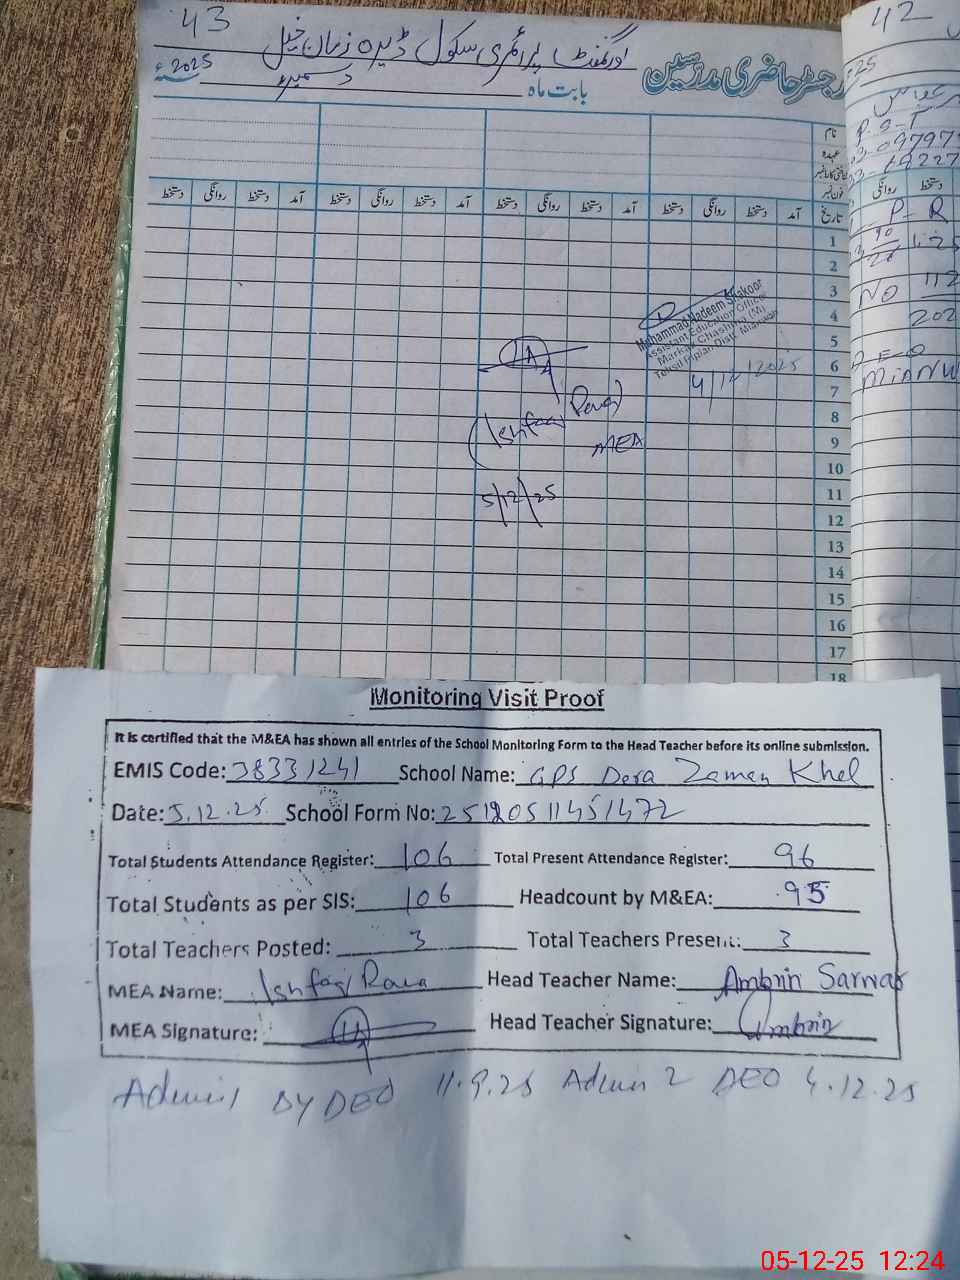 43
گورنمنٹ پرائمری سکول ڈیرہ زمان خیل
رجسٹر حاضری مدرسین
بابت ماہ دسمبر 2025ء
نام
عہدہ
فون نمبر
تاریخ آمد دستخط روانگی دستخط آمد دستخط روانگی دستخط آمد دستخط روانگی دستخط آمد دستخط روانگی دستخط
1
2
3
4
5
6
7
8
9
10
11
12
13
14
15
16
17
18
Muhammad Nadeem Shakoor
Assistant Education Officer
Markaz Ghashmia (M)
Tehsil Piplan Distt. Mianwali
4/12/2025
(Ishfaq Rana)
MEA
5/12/25
42
P.S.T
روانگی دستخط
P-R
NO 112
202
Monitoring Visit Proof
It is certified that the M&EA has shown all entries of the School Monitoring Form to the Head Teacher before its online submission.
EMIS Code: 38331241 School Name: GPS Dera Zaman Khel
Date: 5.12.25 School Form No: 25120511451472
Total Students Attendance Register: 106 Total Present Attendance Register: 96
Total Students as per SIS: 106 Headcount by M&EA: 95
Total Teachers Posted: 3 Total Teachers Present: 3
MEA Name: Ishfaq Rana Head Teacher Name: Ambrin Sarwar
MEA Signature: Head Teacher Signature: Ambrin
Admin 1 By DEO 11.9.25 Admin 2 DEO 4.12.25
05-12-25 12:24